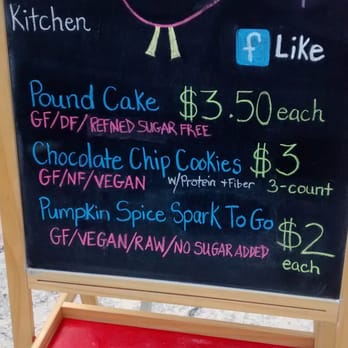 Kitchen
f Like
Pound Cake $3.50 each
GF/DF/REFINED SUGAR FREE
Chocolate Chip Cookies $3
GF/NF/VEGAN w/Protein + Fiber 3-count
Pumpkin Spice Spark To Go $2
GF/VEGAN/RAW/NO SUGAR ADDED each